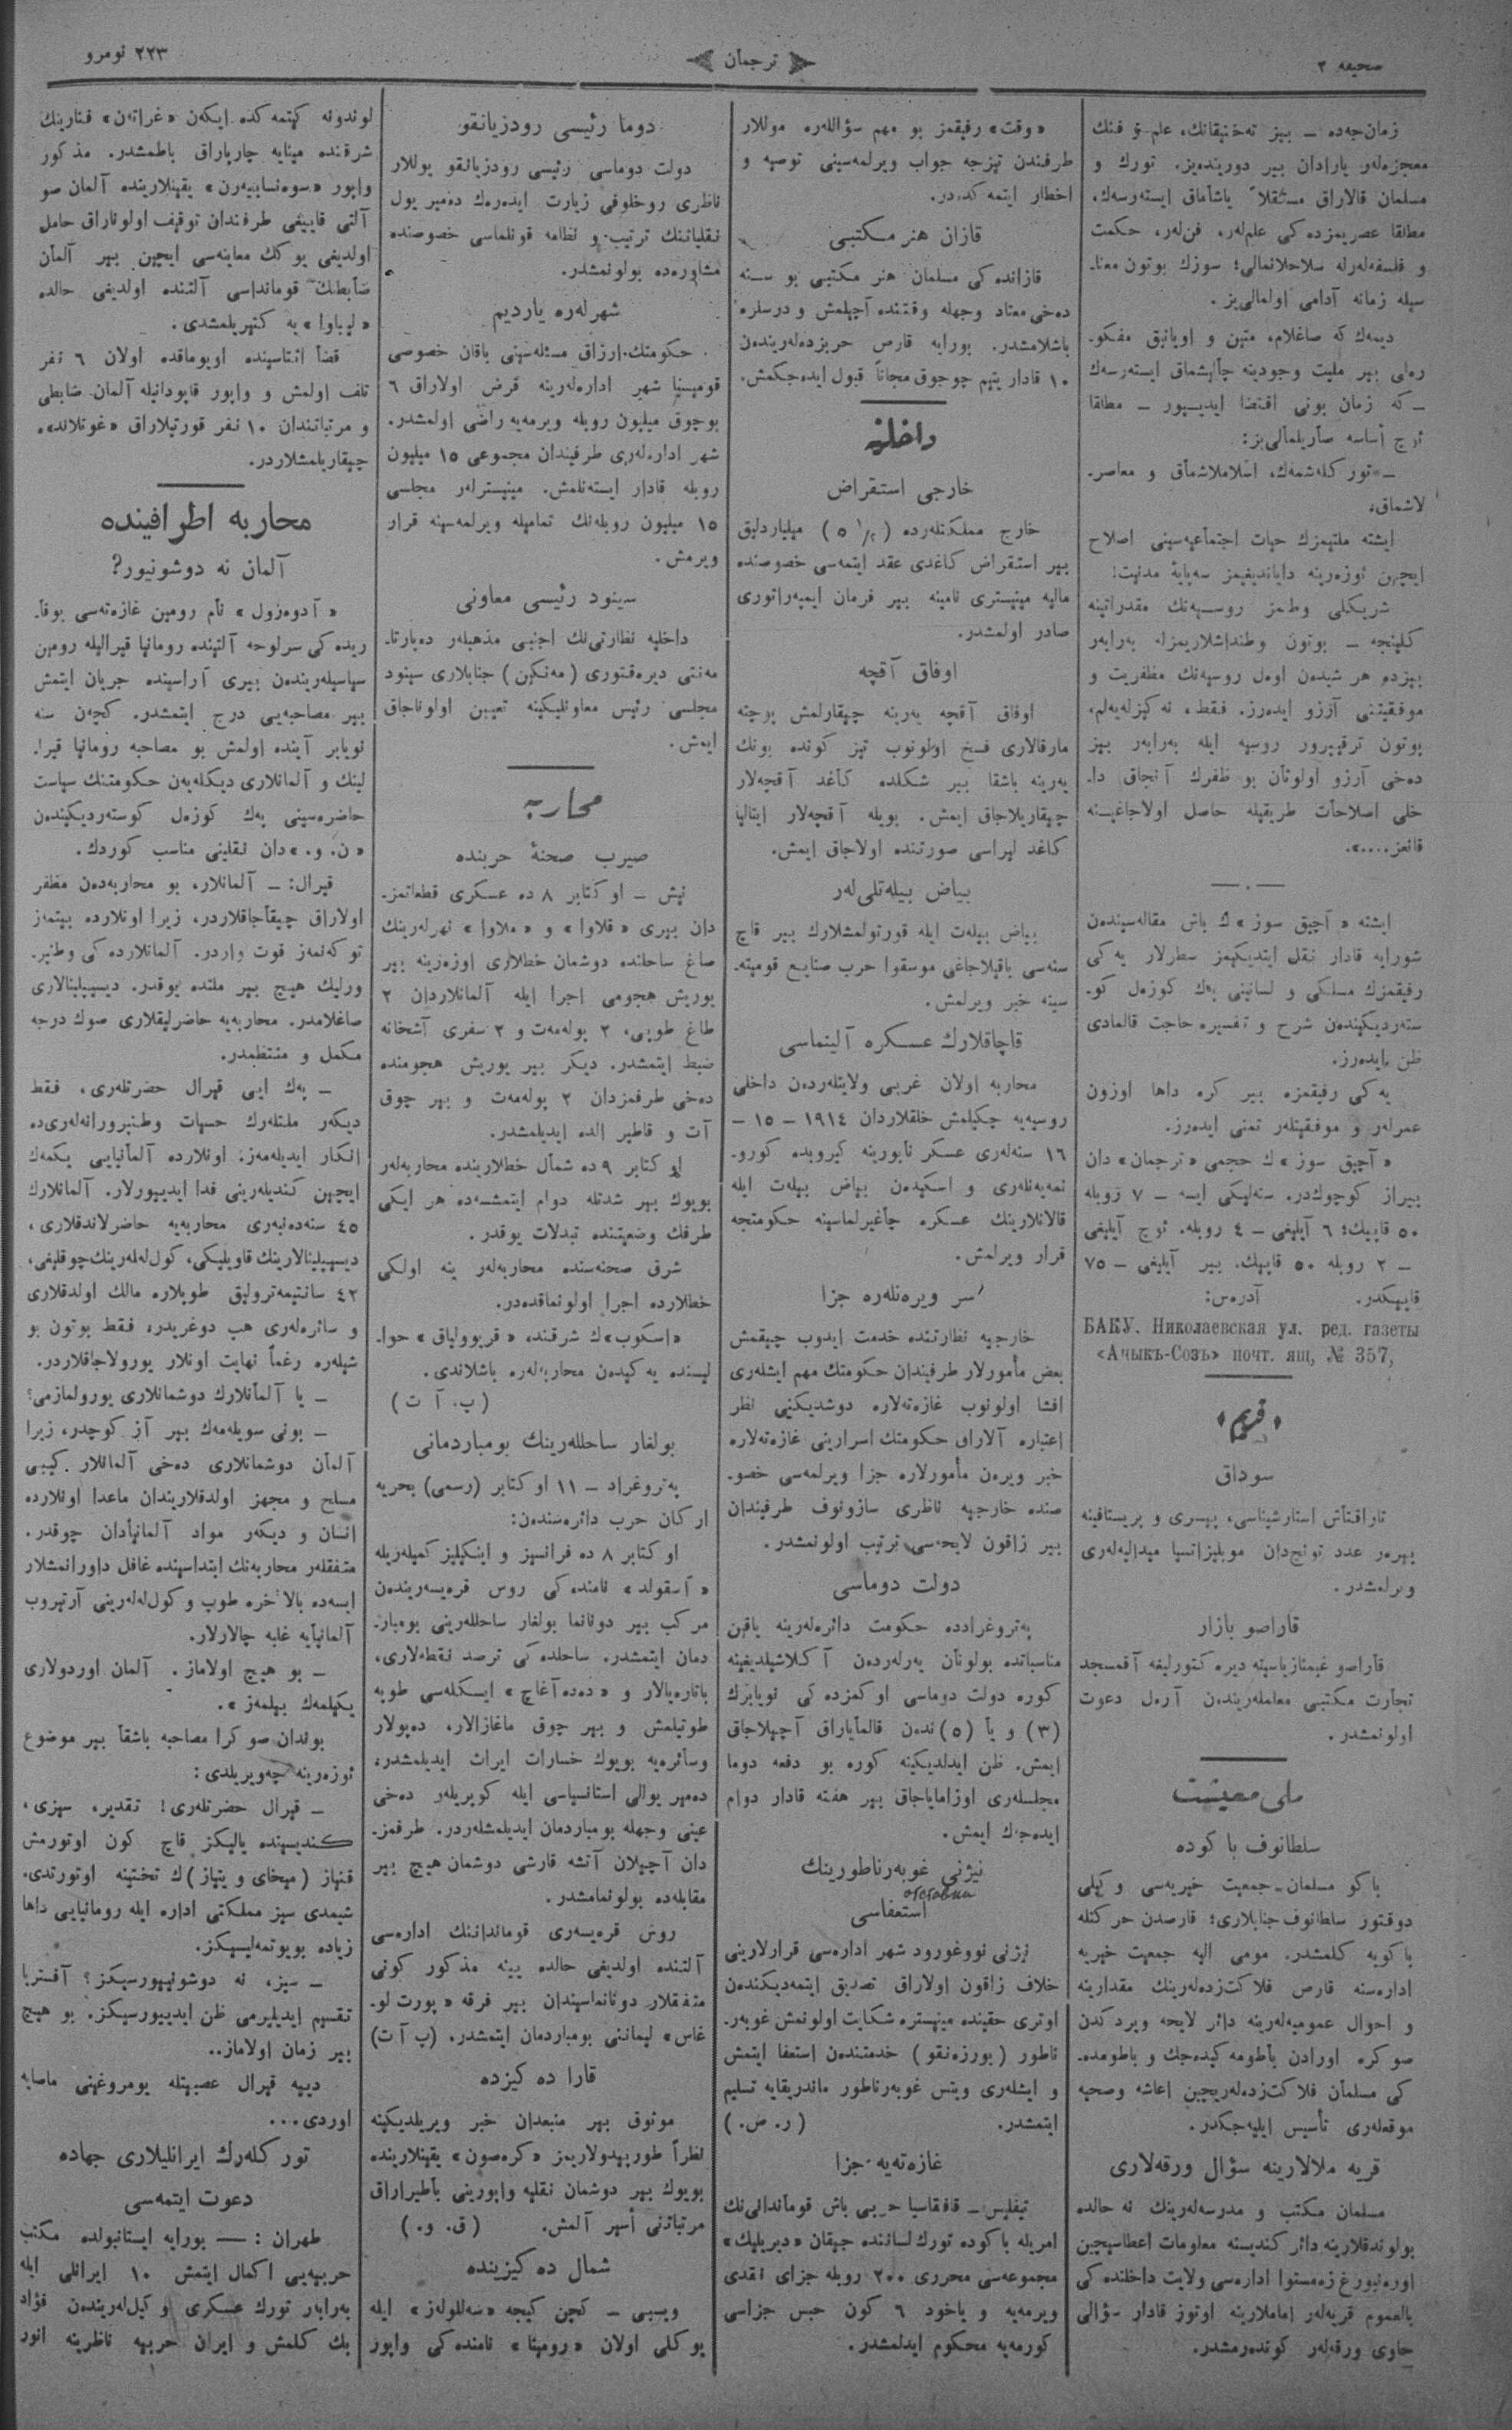 صحیفه ۲
ترجمان
۲۲۳ نومرو
زمان‌جه‌ده – بیز ته‌ختیقانك، علم و فنك
معجزه‌لەر یارادان بیر دورینده‌یز. تورك و
مسلمان قالاراق مستقلاً یاشاماق ایسته‌رسه‌ك،
مطلقا عصریمزده‌كی علم‌لەر، فن‌لەر، حكمت
و فلسفه‌لەرله سلاحلانمالی؛ سوزك بوتون معنا-
سیله زمانه آدامی اولمالی‌یز.
دیمه‌ك كه صاغلام، متین و اویانیق مفكو-
ره‌لی بیر ملیت وجودینه چالیشماق ایسته‌رسه‌ك
– كه زمان بونی اقتضا ایدییور – مطلقا
ئوچ أساسه صاریلمالی‌یز:
– تورکله‌شمه‌ك، اسلاملاشماق و معاصر-
لاشماق،
ایشته ملتیمزك حیات اجتماعیه‌سینی اصلاح
ایچین ئوزه‌رینه دایاندیغیمز سه‌پایهٔ مدنیت!
شریكلی وطنمز روسیه‌نك مقدراتینه
كلینجه – بوتون وطنداشلاریمزله به‌رابه‌ر
بیزده هر شیدن اول روسیه‌نك مظفریت و
موفقیتنی آرزو ایده‌رز. فقط، نه‌كیزله‌یه‌لم،
بوتون ترقیپرور روسیه ایله به‌رابه‌ر بیز
ده‌خی آرزو اولونان بو ظفرك آنجاق دا-
خلی اصلاحات طریقیله حاصل اولاجاغینه
قانعز....».
ایشته «آچیق سوز»ك باش مقاله‌سیندەن
شورایه قادار نقل ایتدیكیمز سطرلار یه‌كی
رفیقمزك مسلكی و لسانینی پك كوزه‌ل كو-
ستەردیكیندەن شرح و تفسیره حاجت قالمادی
ظن ایده‌رز.
یه‌كی رفیقمزه بیر كره داها اوزون
عمرلەر و موفقیتلەر تمنی ایده‌رز.
«آچیق سوز»ك حجمی «ترجمان»دان
بیراز كوچوكدر. سنه‌لیكی ایسه – ۷ روبله
۵۰ قاپیك؛ ٦ آیلیغی – ٤ روبله. ئوچ آیلیغی
– ۲ روبله ۵۰ قاپیك. بیر آیلیغی – ۷۵
قاپیكدر. آدرەس:
БАКУ. Николаевская ул. ред. газеты
«Ачыкъ-Созъ» почт. ящ, № 357,
«قریم»
سوداق
تاراقتاش استارشیناسی، پیسری و پریستافینه
بیرەر عدد تونج‌دان موبلیزاتسیا میدالیه‌لەری
ویرلمشدر.
قاراصو بازار
قاراصو غیمنازیاسینه دیره‌كتورلیغه آقمسجد
تجارت مكتبی معلملەریندەن آرەل دعوت
اولونمشدر.
ملی معیشت
سلطانوف باكوده
باكو مسلمان جمعیت خیریه‌سی وكیلی
دوقتور سلطانوف جنابلاری؛ قارصدن حركتله
باكویه كلمشدر. مومی الیه جمعیت خیریه
اداره‌سنه قارص فلاكت‌زده‌لەرینك مقدارینه
و احوال عمومیه‌لەرینه دائر لایحه ویردكدن
صوكره اورادن باطومه كیده‌جك و باطومده-
كی مسلمان فلاكت‌زده‌لەریچین اعاشه وصحیه
موقعه‌لەری تأسیس ایلیه‌جكدر.
قریه ملالارینه سؤال ورقه‌لاری
مسلمان مكتب و مدرسه‌لەرینك نه حالده
بولوندقلارینه دائر كندیسنه معلومات اعطاسیچین
اوره‌نبورغ زەمستوا اداره‌سی ولایت داخلنده‌كی
بالعموم قریه‌لەر اماملارینه اوتوز قادار سؤالی
حاوی ورقه‌لەر كوندەرمشدر.
«وقت» رفیقمز بو مهم سؤاللەره موللار
طرفندن تیزجه جواب ویرلمه‌سینی توصیه و
اخطار ایتمه‌كده‌در.
قازان هنر مكتبی
قازانده‌كی مسلمان هنر مكتبی بو سنه
ده‌خی معتاد وجهله وقتنده آچیلمش و درسلره
باشلامشدر. بورایه قارص حربزده‌لەریندەن
۱۰ قادار یتیم چوجوق مجاناً قبول ایده‌جكمش.
داخلیه
خارجی استقراض
خارج مملكتلەرده (۵ ۱/۲) میلیاردلیق
بیر استقراض كاغدی عقد ایتمه‌سی خصوصنده
مالیه مینیستری نامینه بیر فرمان ایمپه‌راتوری
صادر اولمشدر.
اوفاق آقچه
اوفاق آقچه یەرینه چیقارلمش پوچته
مارقالاری فسخ اولونوب تیز كونده بونك
یەرینه باشقا بیر شكلده كاغد آقچه‌لار
چیقاریلاجاق ایمش. بویله آقچه‌لار ایتالیا
كاغد لیراسی صورتنده اولاجاق ایمش.
بیاض بیله‌تلی‌لەر
بیاض بیله‌ت ایله قورتولمشلارك بیر قاچ
سنه‌سی باقیلاجاغی موسقوا حرب صنایع قومیته-
سینه خبر ویرلمش.
قاچاقلارك عسكره آلینماسی
محاربه اولان غربی ولایتلەردەن داخلی
روسیه‌یه چكیلمش خلقلاردان ۱۹۱٤ – ۱۵ –
۱٦ سنه‌لەری عسكر نابورینه كیروبده كورو-
نمه‌یه‌نلەری و اسكیدەن بیاض بیله‌ت ایله
قالانلارینك عسكره چاغیرلماسینه حكومتجه
قرار ویرلمش.
سر ویرەنلەره جزا
خارجیه نظارتنده خدمت ایدوب چیقمش
بعض مأمورلار طرفیندان حكومتك مهم ایشلەری
افشا اولونوب غازه‌ته‌لاره دوشدیكنی نظر
اعتباره آلاراق حكومتك اسرارینی غازه‌ته‌لاره
خبر ویرەن مأمورلاره جزا ویرلمه‌سی خصو-
صنده خارجیه ناظری سازونوف طرفیندان
بیر زاقون لایحه‌سی ترتیب اولونمشدر.
دولت دوماسی
په‌تروغرادده حكومت دائره‌لەرینه یاقین
مناسباتده بولونان یەرلەردەن آكلاشیلدیغینه
كوره دولت دوماسی اوكمزده‌كی نویابرك
(۳) و یا (۵)ندەن قالمایاراق آچیلاجاق
ایمش. ظن ایدلدیكینه كوره بو دفعه دوما
مجلسلەری اوزامایاجاق بیر هفته قادار دوام
ایده‌جك ایمش.
نیژنی غوبه‌رناطورینك
отставка
استعفاسی
نیژنی نووغورود شهر اداره‌سی قرارلارینی
خلاف زاقون اولاراق تصدیق ایتمه‌دیكندەن
اوتری حقینده مینیستره شكایت اولونمش غوبه‌ر-
ناطور (بورزه‌نقو) خدمتندەن استعفا ایتمش
و ایشلەری ویتس غوبه‌رناطور ماندریقایه تسلیم
ایتمشدر. (ر. ص.)
غازه‌ته‌یه جزا
تیفلیس – قافقاسیا حربی باش قوماندانی‌نك
امریله باكوده تورك لساننده چیقان «دیریلیك»
مجموعه‌سی محرری ۲۰۰ روبله جزای نقدی
ویرمه‌یه و یاخود ٦ كون حبس جزاسی
كورمه‌یه محكوم ایدلمشدر.
دوما رئیسی رودزیانقو
دولت دوماسی رئیسی رودزیانقو یوللار
ناظری روخلوفی زیارت ایده‌رەك ده‌میر یول
نقلیاتنك ترتیب و نظامه قونلماسی خصوصنده
مشاوره‌ده بولونمشدر.
شهرلەره یاردیم
حكومتك ارزاق مسئله‌سینی باقان خصوصی
قومیسیا شهر اداره‌لەرینه قرض اولاراق ٦
بوچوق میلیون روبله ویرمه‌یه راضی اولمشدر.
شهر اداره‌لەری طرفیندان مجموعی ۱۵ میلیون
روبله قادار ایسته‌نلمش. مینیسترلەر مجلسی
۱۵ میلیون روبله‌نك تمامیله ویرلمه‌سینه قرار
ویرمش.
سینود رئیسی معاونی
داخلیه نظارتی‌نك اجنبی مذهبلەر ده‌پارتا-
مه‌نتی دیره‌قتوری (مه‌نكین) جنابلاری سینود
مجلسی رئیس معاونلیكینه تعیین اولوناجاق
ایمش.
محاربه
صیرب صحنهٔ حربنده
نیش – اوكتابر ۸ ده عسكری قطعاتمز-
دان بیری «قلاوا» و «ملاوا» نهرلەرینك
صاغ ساحلنده دوشمان خطلاری اوزەرینه بیر
یوریش هجومی اجرا ایله آلمانلاردان ۲
طاغ طوپی، ۲ پوله‌مه‌ت و ۲ سفری آشخانه
ضبط ایتمشدر. دیكر بیر یوریش هجومنده
ده‌خی طرفمزدان ۲ پوله‌مه‌ت و بیر چوق
آت و قاطیر الده ایدیلمشدر.
اوكتابر ۹ ده شمال خطلارینده محاربه‌لەر
بویوك بیر شدتله دوام ایتمشسه‌ده هر ایكی
طرفك وضعیتنده تبدلات یوقدر.
شرق صحنه‌سنده محاربه‌لەر ینه اولكی
خطلارده اجرا اولونماقده‌در.
«اسكوب»ك شرقنده، «قریوولپاق» حوا-
لیسنده یه‌كیدەن محاربه‌لەره باشلاندی.
(پ. آ ت)
بولغار ساحللەرینك بومباردمانی
په‌تروغراد – ۱۱ اوكتابر (رسمی) بحریه
اركان حرب دائره‌سندەن:
اوكتابر ۸ ده فرانسیز و اینكیلیز كمیلەریله
«آسقولد» نامنده‌كی روس قره‌یسه‌ریندەن
مركب بیر دونانما بولغار ساحللەرینی بومبار-
دمان ایتمشدر. ساحلده‌كی ترصد نقطه‌لاری،
باتاره‌یالار و «دده‌آغاچ» ایسكله‌سی طوپه
طوتیلمش و بیر چوق ماغازالار، ده‌پولار
وسائره‌یه بویوك خسارات ایراث ایدیلمشدر،
ده‌میر یولی استانسیاسی ایله كوپریلەر ده‌خی
عینی وجهله بومباردمان ایدیلمشلەردر. طرفمز-
دان آچیلان آتشه قارشی دوشمان هیچ بیر
مقابله‌ده بولونمامشدر.
روس قره‌یسه‌ری قوماندانینك اداره‌سی
آلتنده اولدیغی حالده یینه مذكور كونی
متفقلار دونانماسیندان بیر فرقه «پورت لو-
غاس» لیماننی بومباردمان ایتمشدر. (پ آ ت)
قارا ده‌كیزده
موثوق بیر منبعدان خبر ویریلدیكینه
نظراً طورپیدولاریمز «كره‌صون» یقینلارینده
بویوك بیر دوشمان نقلیه واپورینی باطیراراق
مرتباتنی أسیر آلمش. (ق. و.)
شمال ده‌كیزینده
ویسبی – كچن كیجه «سه‌للوله‌ز» ایله
یوكلی اولان «رومینا» نامنده‌كی واپور
لوندونه كیتمه‌كده ایكەن «غراته‌ن» فنارینك
شرقنده مینایه چارپاراق باطمشدر. مذكور
واپور «سوه‌نسابیه‌رن» یقینلارینده آلمان صو
آلتی قاییغی طرفندان توقیف اولوناراق حامل
اولدیغی یوكك معاینه‌سی ایچین بیر آلمان
ضابطنك قومانداسی آلتنده اولدیغی حالده
«لیباوا»یه كتیریلمشدی.
قضأ اثناسینده اویوماقده اولان ٦ نفر
تلف اولمش و واپور قاپودانیله آلمان ضابطی
و مرتباتندان ۱۰ نفر قورتیلاراق «غوتلاند»ه
چیقاریلمشلاردر.
محاربه اطرافینده
آلمان نه دوشونیور؟
«آدوه‌رول» نام رومین غازه‌ته‌سی یوقا-
ریده‌كی سرلوحه آلتینده رومانیا قیرالیله رومین
سیاسیلەریندەن بیری آراسینده جریان ایتمش
بیر مصاحبه‌یی درج ایتمشدر. كچەن سنه
نویابر آینده اولمش بو مصاحبه رومانیا قیرا-
لینك و آلمانلاری دیكله‌یەن حكومتنك سیاست
حاضره‌سینی پك كوزه‌ل كوستەردیكیندەن
«ن. و.»دان نقلینی مناسب كوردك.
قیرال: – آلمانلار، بو محاربه‌دەن مظفر
اولاراق چیقاجاقلاردر، زیرا اونلارده بیتمه‌ز
توكه‌نمه‌ز قوت واردر. آلمانلارده‌كی وطنپر-
ورلیك هیچ بیر ملتده یوقدر. دیسیپلینالاری
صاغلامدر. محاربه‌یه حاضرلیقلاری صوك درجه
مكمل و منتظمدر.
– پك ایی قیرال حضرتلەری، فقط
دیكەر ملتلەرك حسیات وطنپرورانه‌لەری‌ده
انكار ایدیله‌مه‌ز؛ اونلارده آلمانیایی یكمه‌ك
ایچین كندیلەرینی فدا ایدییورلار. آلمانلارك
٤۵ سنه‌ده‌نبه‌ری محاربه‌یه حاضرلاندقلاری،
دیسیپلینالارینك قاویلیكی، كولله‌لەرینك چوقلیغی،
٤۲ سانتیمه‌ترولیق طوپلاره مالك اولدقلاری
و سائره‌لەری هپ دوغریدر، فقط بوتون بو
شیلەره رغماً نهایت اونلار یورولاجاقلاردر.
– یا آلمانلارك دوشمانلاری یورولمازمی؟
– بونی سویله‌مه‌ك بیر آز كوچدر، زیرا
آلمان دوشمانلاری ده‌خی آلمانلار كیبی
مسلح و مجهز اولدقلاریندان ماعدا اونلارده
انسان و دیكەر مواد آلمانیادان چوقدر.
متفقلەر محاربه‌نك ابتداسینده غافل داورانمشلار
ایسه‌ده بالاخره طوپ و كولله‌لەرینی آرتیروب
آلمانیایه غلبه چالارلار.
– بو هیچ اولاماز. آلمان اوردولاری
یكیلمه‌ك بیلمه‌ز».
بوندان صوكرا مصاحبه باشقا بیر موضوع
ئوزه‌رینه چه‌ویریلدی:
– قیرال حضرتلەری! تقدیر، سیزی،
كندیسینده یالیكز قاچ كون اوتورمش
قنیاز (میخای ویتیاز)ك تختینه اوتورتدی.
شیمدی سیز مملكتی اداره ایله رومانیایی داها
زیاده بویوتمه‌لیسیكز.
– سیز، نه دوشونییورسیكز؟ آفستریا
تقسیم ایدیلیرمی ظن ایدییورسیكز. بو هیچ
بیر زمان اولاماز..
دییه قیرال عصبیتله یومروغینی ماصایه
اوردی...
توركلەرك ایرانلیلاری جهاده
دعوت ایتمه‌سی
طهران: — بورایه ایستانبولده مكتب
حربیه‌یی اكمال ایتمش ۱۰ ایرانلی ایله
به‌رابه‌ر تورك عسكری وكیل‌لەریندەن فؤاد
بك كلمش و ایران حربیه ناظرینه انور